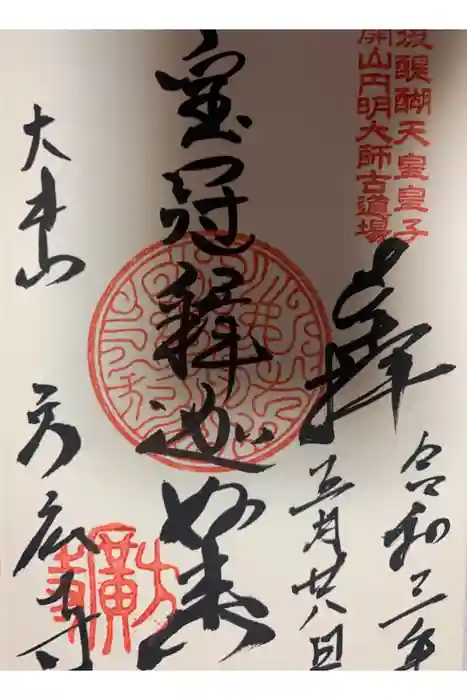 後醍醐天皇皇子
開山円明大師古道場
奉拝
令和三年
五月廿八日
宝冠釋迦如来
大本山
方広寺
方廣寺